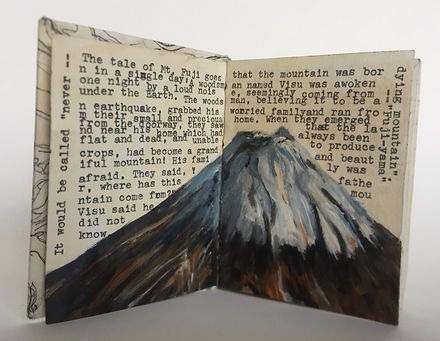 The tale of Mt. Fuji goes
n in a single day! A woodsm
one night by a loud nois
under the Earth. The woods
n earthquake, grabbed his
m their small and precious
from the doorway, they saw
nd near his home which had
flat and dead, and unable
crops, had become a grand
iful mountain! His fami
afraid. They said,
r, where has this
ntain come
Visu said he
did not
know.
It would be called "never --
that the mountain was bor
an named Visu was awoken
e, seemingly coming from
man, believing it to be a
worried familyand ran fro
home. When they emerged
that the la
always been
to produce
and beaut
ly was
fathe
mou
dying mountain"
--"Fuji-Yama"